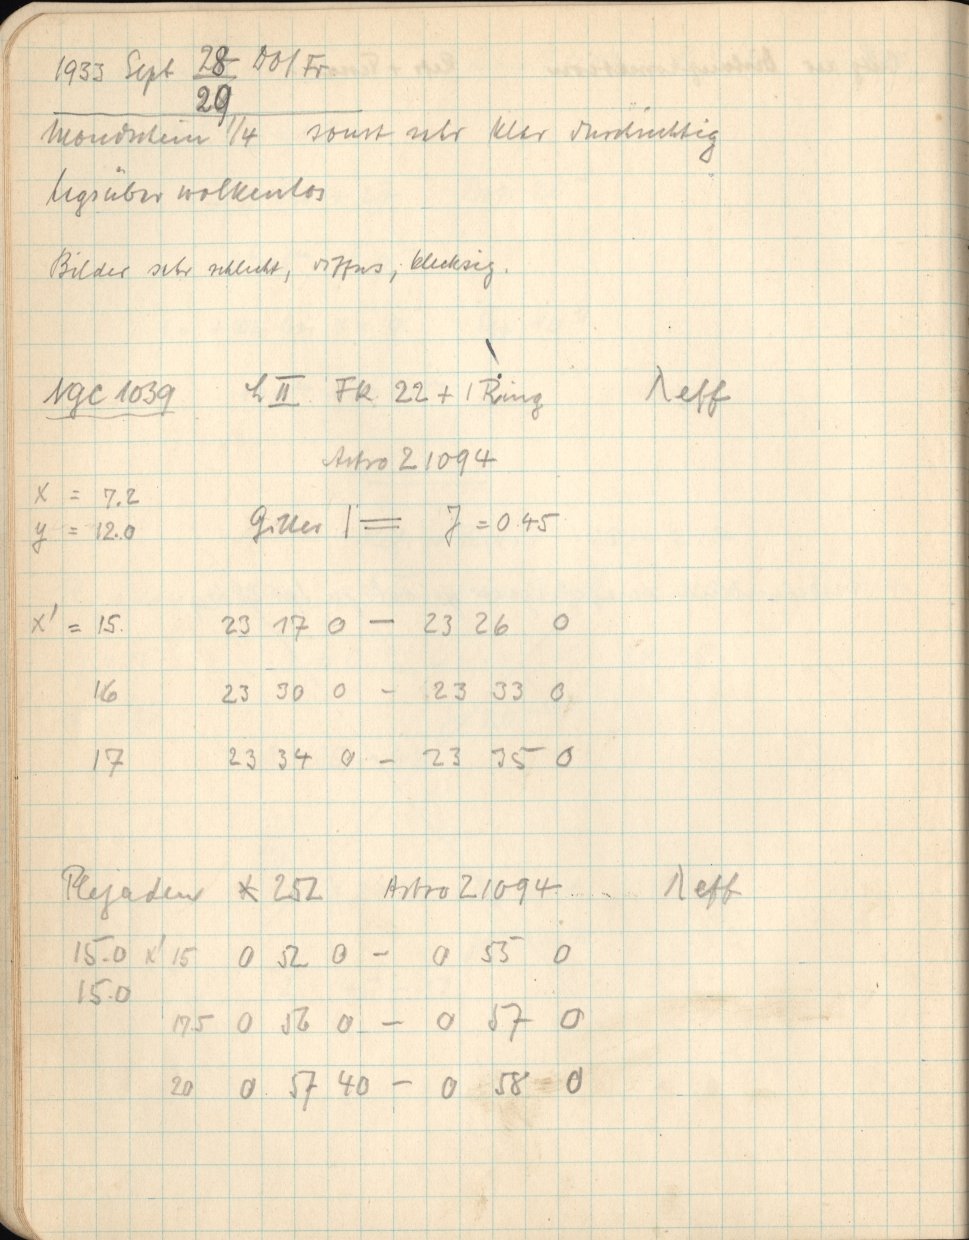 1933 Sept 28/29 Do/Fr
Mondschein 1/4 sonst sehr klar durchsichtig
tagsüber wolkenlos
Bilder sehr schlecht, diffus, klecksig.
NGC 1039 L II FK 22 + 1 Ring λ eff
Astro 21094
x = 7.2
y = 12.0 Gitter | = J = 0.45
x' = 15. 23 17 0 – 23 26 0
16 23 30 0 – 23 33 0
17 23 34 0 – 23 35 0
Plejaden * 252 Astro 21094 λ eff
15.0 x' 15 0 52 0 – 0 55 0
15.0
17.5 0 56 0 – 0 57 0
20 0 57 40 – 0 58 0